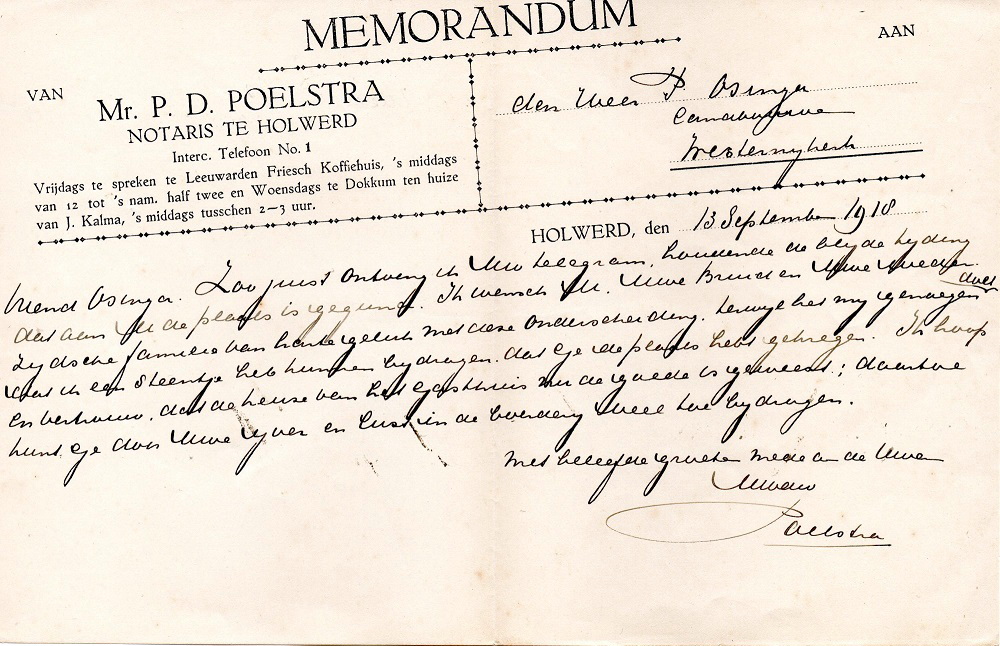 MEMORANDUM
VAN
AAN
Mr. P. D. POELSTRA
NOTARIS TE HOLWERD
Interc. Telefoon No. 1
Vrijdags te spreken te Leeuwarden Friesch Koffiehuis, 's middags
van 12 tot 's nam. half twee en Woensdags te Dokkum ten huize
van J. Kalma, 's middags tusschen 2—3 uur.
den Heer P Osinga
Westernijkerk
HOLWERD, den 13 September 1918
Vriend Osinga. Zoo juist ontving ik Uw telegram, houdende de blijde tijding
dat aan U de plaats is gegund. Ik wensch U, Uwe Bruid en Uwe
zijdsche familie van harte geluk met deze onderscheiding, terwijl het mij genoegen doet
dat ik een steentje heb kunnen bijdragen, dat ge de plaats hebt gekregen. Ik hoop
en vertrouw, dat de keuze van het Gasthuis nu de goede is geweest; daartoe
kunt ge door Uwe ijver en lust in de boerderij veel toe bijdragen.
Met beleefde groeten mede aan de Uwen
Uwdw
Poelstra